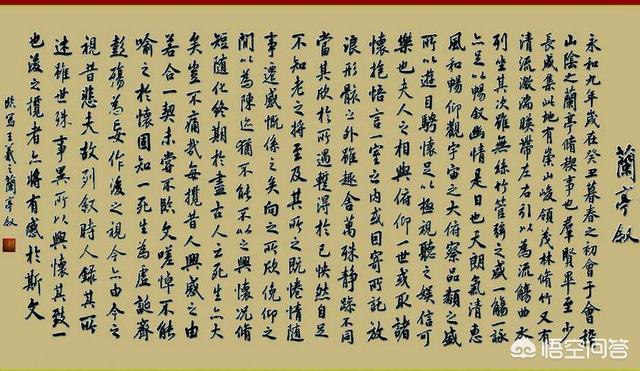 蘭亭叙
永和九年歲在癸丑暮春之初會于會稽
山陰之蘭亭脩稧事也羣賢畢至少
長咸集此地有崇山峻領茂林脩竹又有
清流激湍暎帶左右引以為流觴曲水
列坐其次雖無絲竹管絃之盛一觴一詠
亦足以暢叙幽情是日也天朗氣清惠
風和暢仰觀宇宙之大俯察品類之盛
所以遊目騁懷足以極視聽之娛信可
樂也夫人之相與俯仰一世或取諸
懷抱悟言一室之內或因寄所託放
浪形骸之外雖趣舍萬殊靜躁不同
當其欣於所遇蹔得於己怏然自足
不知老之將至及其所之既惓情隨
事遷感慨係之矣向之所欣俛仰之
間以為陳迹猶不能不以之興懷況脩
短隨化終期於盡古人云死生亦大
矣豈不痛哉每攬昔人興感之由
若合一契未嘗不臨文嗟悼不能
喻之於懷固知一死生為虛誕齊
彭殤為妄作後之視今亦由今之
視昔悲夫故列叙時人錄其所
述雖世殊事異所以興懷其致一
也後之攬者亦將有感於斯文
臨写王羲之蘭亭叙
悟空问答